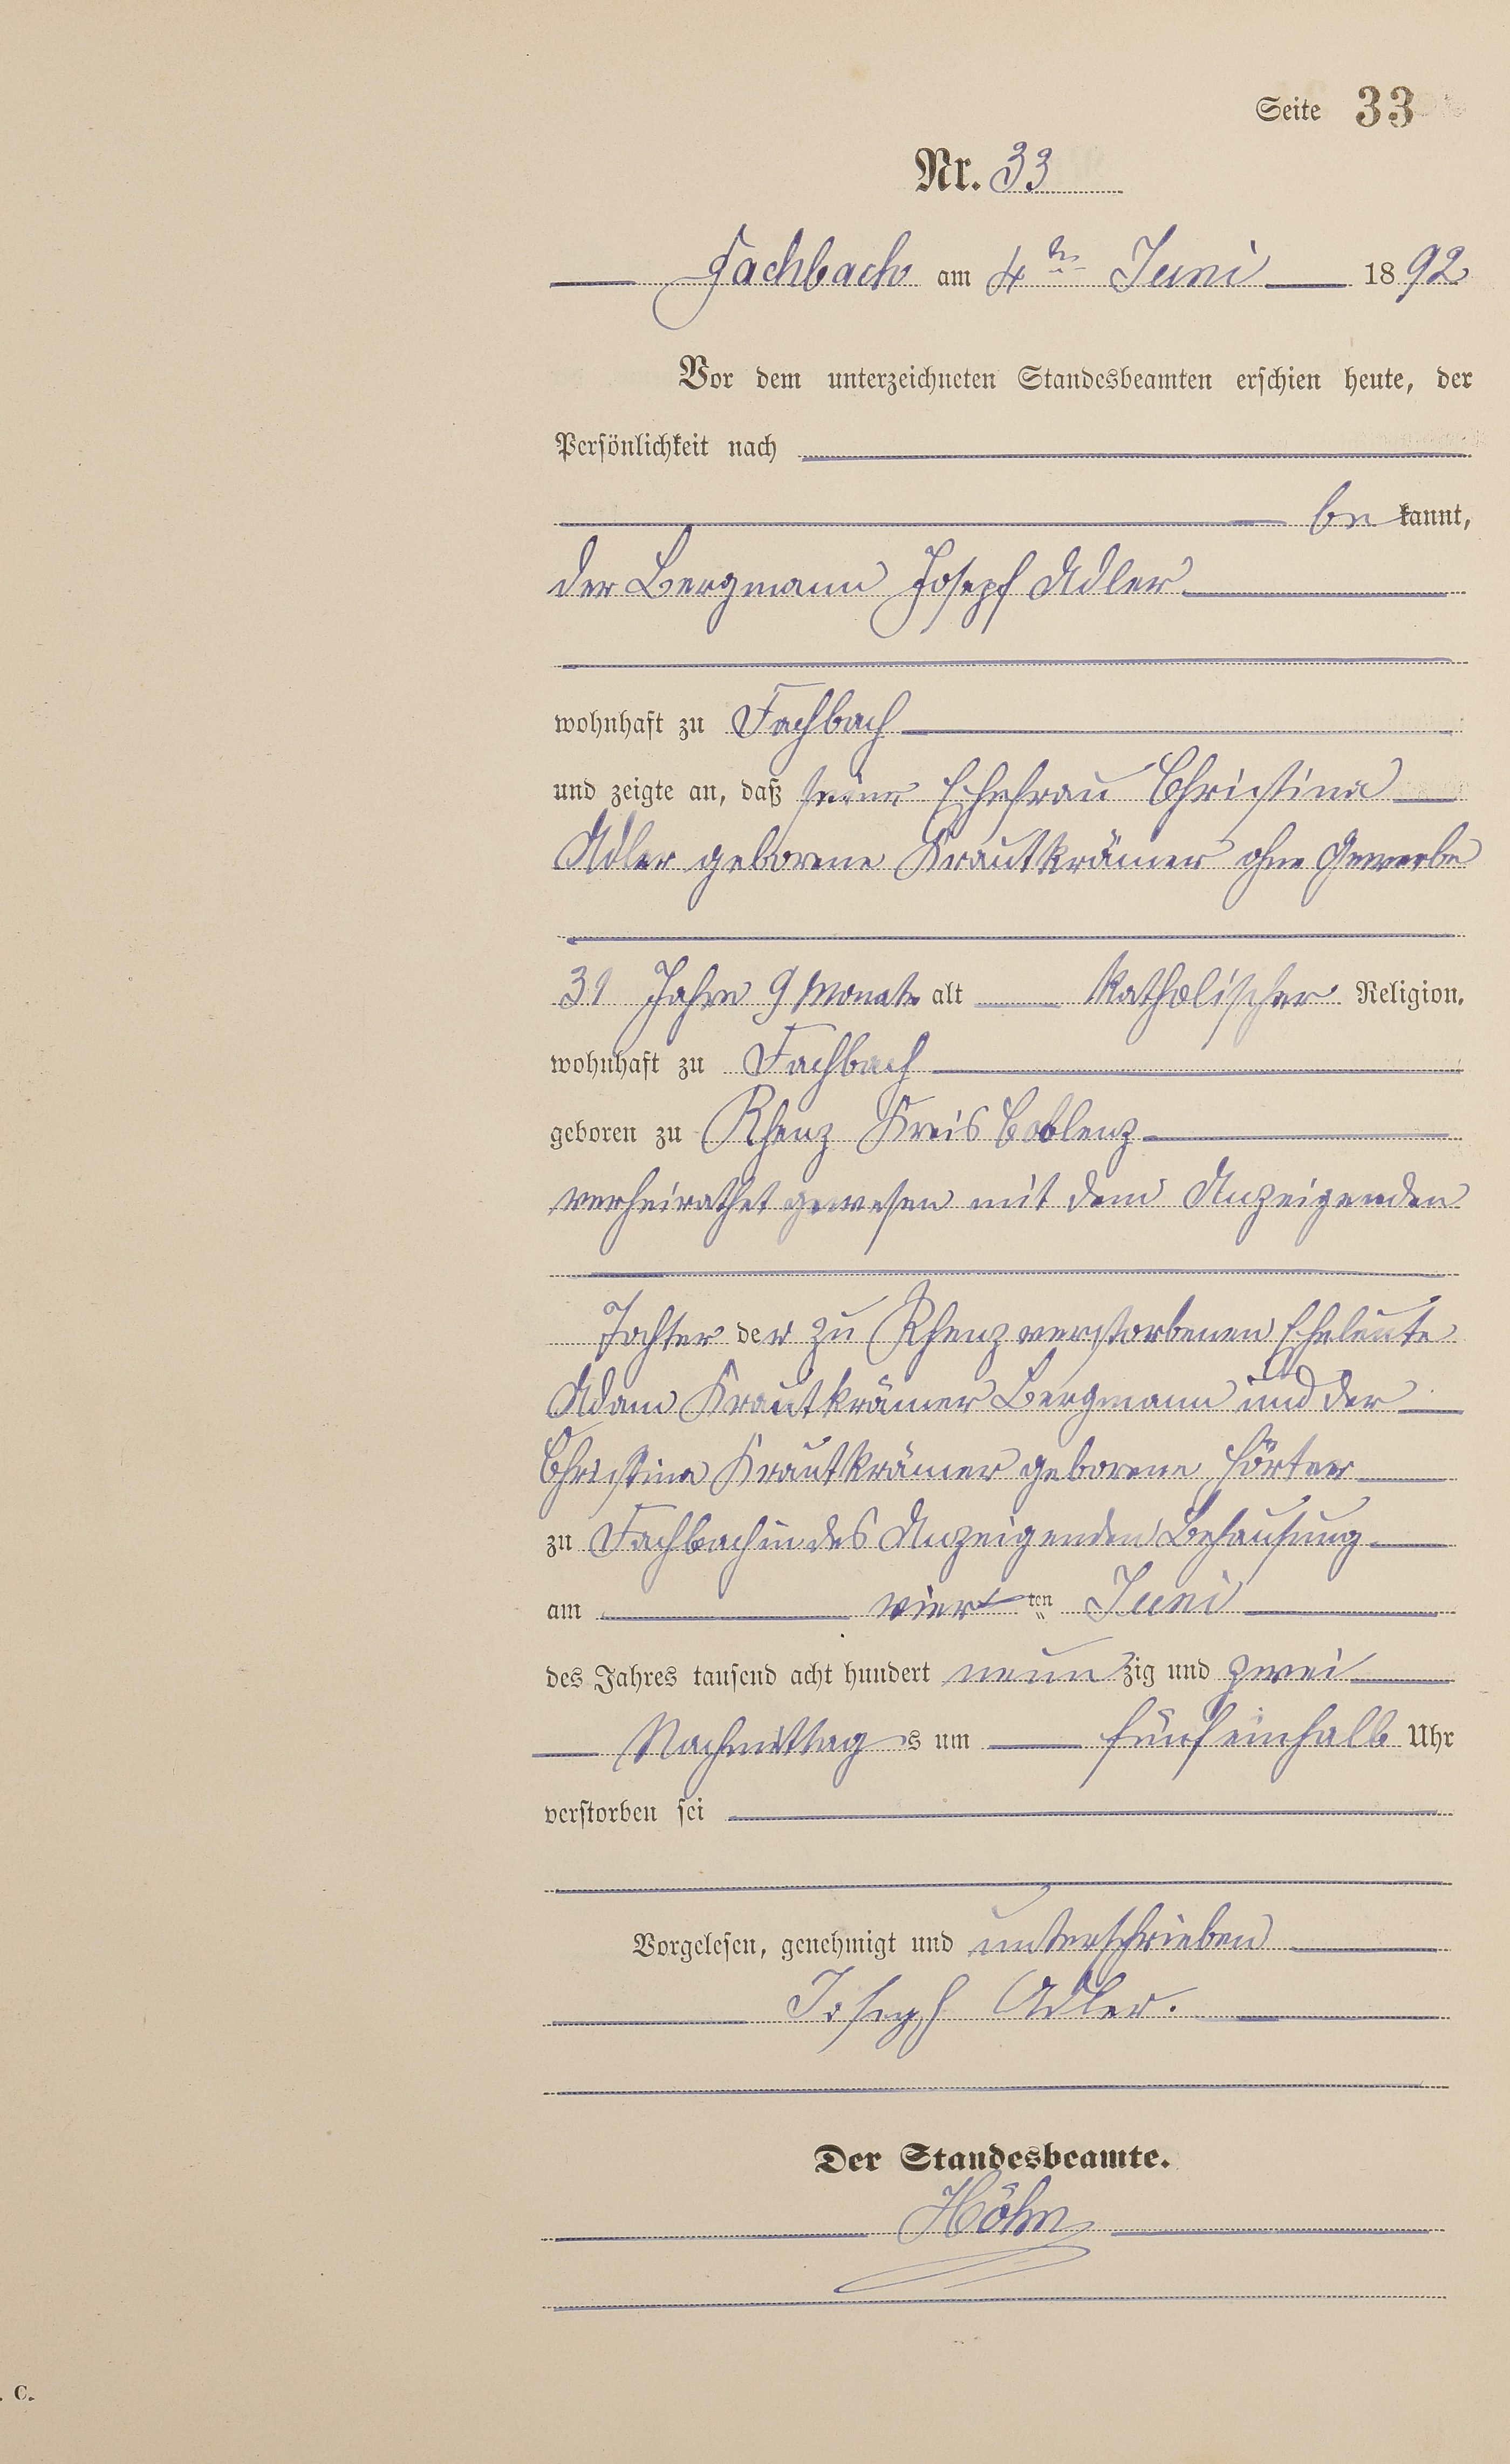 Seite 33
Nr. 33
Fachbach am 4ten Juni 1892
Vor dem unterzeichneten Standesbeamten erschien heute, der
Persönlichkeit nach
be kannt,
der Bergmann Joseph Adler
wohnhaft zu Fachbach
und zeigte an, daß seine Ehefrau Christina
Adler geborene Krautkrämer ohne Gewerbe
31 Jahre 9 Monate alt katholischer Religion.
wohnhaft zu Fachbach
geboren zu Rhenz Kreis Coblenz
verheirathet gewesen mit dem Anzeigenden
Tochter der zu Rhenz verstorbenen Eheleute
Adam Krautkrämer Bergmann und der
Christina Krautkrämer geborene Hörter
zu Fachbach in des Anzeigenden Behausung
am vierten Juni
des Jahres tausend acht hundert neunzig und zwei
Nachmittags um fünf einhalb Uhr
verstorben sei
Vorgelesen, genehmigt und unterschrieben
Joseph Adler.
Der Standesbeamte.
Höhn
. C.